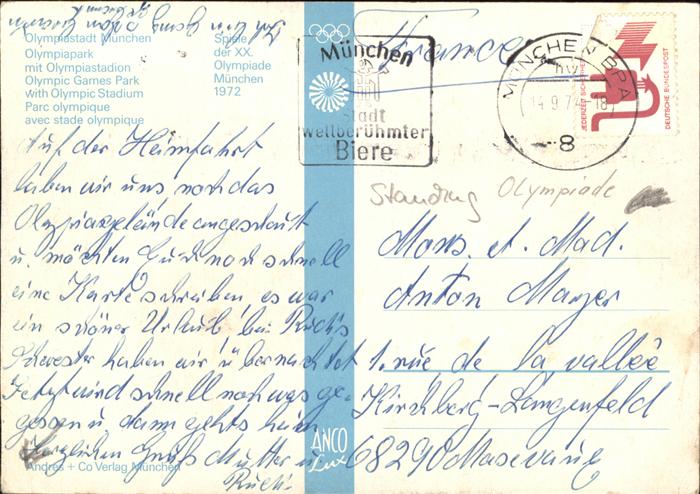 Olympiastadt München
Olympiapark
mit Olympiastadion
Olympic Games Park
with Olympic Stadium
Parc olympique
avec stade olympique
Spiele
der XX.
Olympiade
München
1972
Auf der Heimfahrt
haben wir uns noch das
Olympiagelände angeschaut
u. möchten Euch noch schnell
eine Karte schreiben, es war
ein schöner Urlaub, bei Ruth's
Schwester haben wir übernachtet
Jetzt wird schnell noch was ge-
gessen u. dann gehts heim
Herzlichen Gruß Mutter u.
Andres + Co Verlag München
München
Stadt
weltberühmter
Biere
ANCO
Lux
France
MÜNCHEN BPA
14.9.72-18
8
JEDERZEIT SICHERHEIT
DEUTSCHE BUNDESPOST
Olympiade
Mons. et. Mad.
Anton Mayer
1. rue de la vallée
Kirschberg-Langenfeld
68290 Masevaux